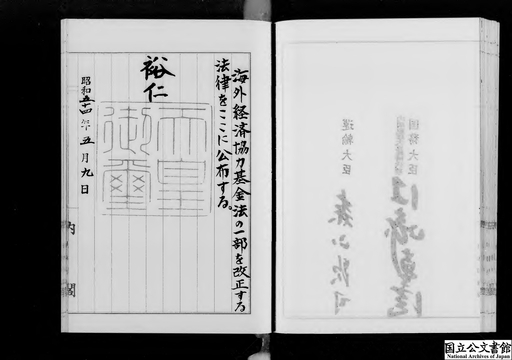 海外経済協力基金法の一部を改正する
法律をここに公布する。
裕仁
天皇
御璽
昭和五十四年五月九日
内閣
国務大臣
運輸大臣
国立公文書館
National Archives of Japan